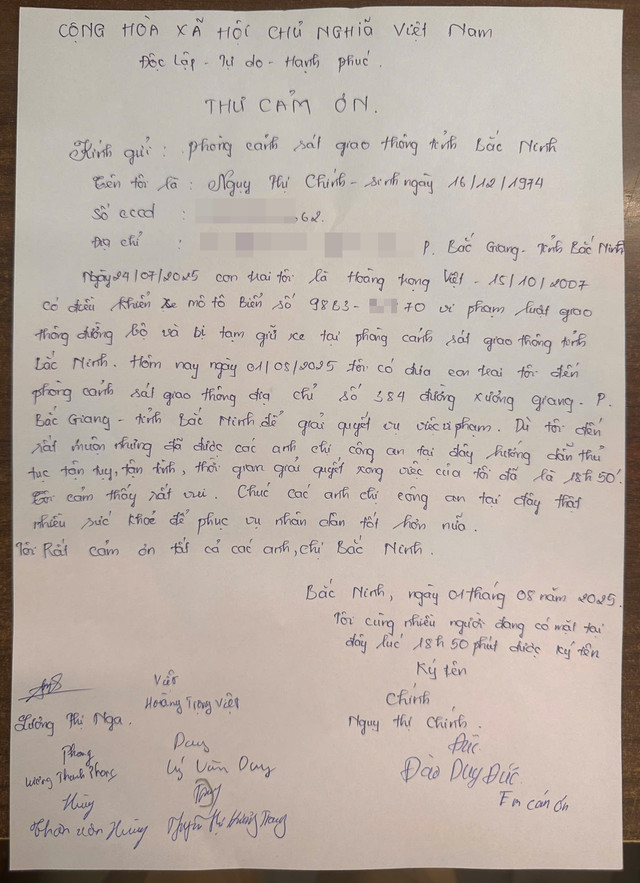 CỘNG HÒA XÃ HỘI CHỦ NGHĨA Việt Nam
Độc Lập - Tự do - Hạnh phúc.
THƯ CẢM ƠN.
Kính gửi : phòng cảnh sát giao thông tỉnh Bắc Ninh
Tên tôi là : Nguy Thị Chính - sinh ngày 16/12/1974
Số cccd : 62.
Địa chỉ : P. Bắc Giang - tỉnh Bắc Ninh
Ngày 24/07/2025 con trai tôi là Hoàng trọng Việt - 15/10/2007
có điều khiển xe mô tô Biển số 98B3- 70 vi phạm luật giao
thông đường bộ và bị tạm giữ xe tại phòng cảnh sát giao thông tỉnh
Bắc Ninh. Hôm nay ngày 01/08/2025 tôi có đưa con trai tôi đến
phòng cảnh sát giao thông địa chỉ số 384 đường xương giang - P.
Bắc Giang - tỉnh Bắc Ninh để giải quyết vụ việc vi phạm. Dù tôi đến
rất muộn nhưng đã được các anh chị công an tại đây hướng dẫn thủ
tục tận tụy, tận tình, thời gian giải quyết xong việc của tôi đã là 18h50'.
Tôi cảm thấy rất vui. Chúc các anh chị công an tại đây thật
nhiều sức khoẻ để phục vụ nhân dân tốt hơn nữa.
Tôi Rất cảm ơn tất cả các anh, chị Bắc Ninh.
Bắc Ninh, ngày 01 tháng 08 năm 2025.
Tôi cùng nhiều người đang có mặt tại
đây lúc 18h50 phút được ký tên
Ký tên
Chính
Nguy thị Chính.
Đức
Đào Duy Đức
Em cảm ơn
Việt
Hoàng Trọng Việt
Lương Thị Nga.
Phong
Lương Thanh Phong
Duy
Lý Văn Duy
Hùng
Thân văn Hùng
Trang
Nguyễn Thị Trang